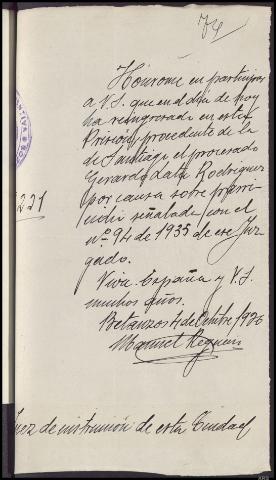 74
Hónrome en participar
a V.S. que en el dia de hoy
ha reingresado en esta
Prision, procedente de la
de Santiago el procesado
Gerardo Rodriguez
por causa sobre parri-
cidio señalada con el
nº 94 de 1935 de ese Juz-
gado.
Viva España y V.S.
muchos años.
Betanzos 4 de Octubre 1936
Manuel
221
Juez de instrucción de esta Ciudad